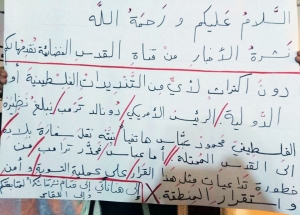 السلام عليكم و رحمة الله
نشرة الأخبار من قناة القدس الفضائية نقدمها لكم
دون اكتراث لأي من التنديدات الفلسطينية أو
الدولية / الرئيس الأمريكي دونالد ترمب / يبلغ نظيره
الفلسطيني محمود عباس هاتفيا / نيته نقل سفارة بلاده
إلى القدس المحتلة / أما عباس فحذر ترامب من
خطورة تداعيات مثل هذا القرار على عملية التسوية / و أمن
و استقرار المنطقة